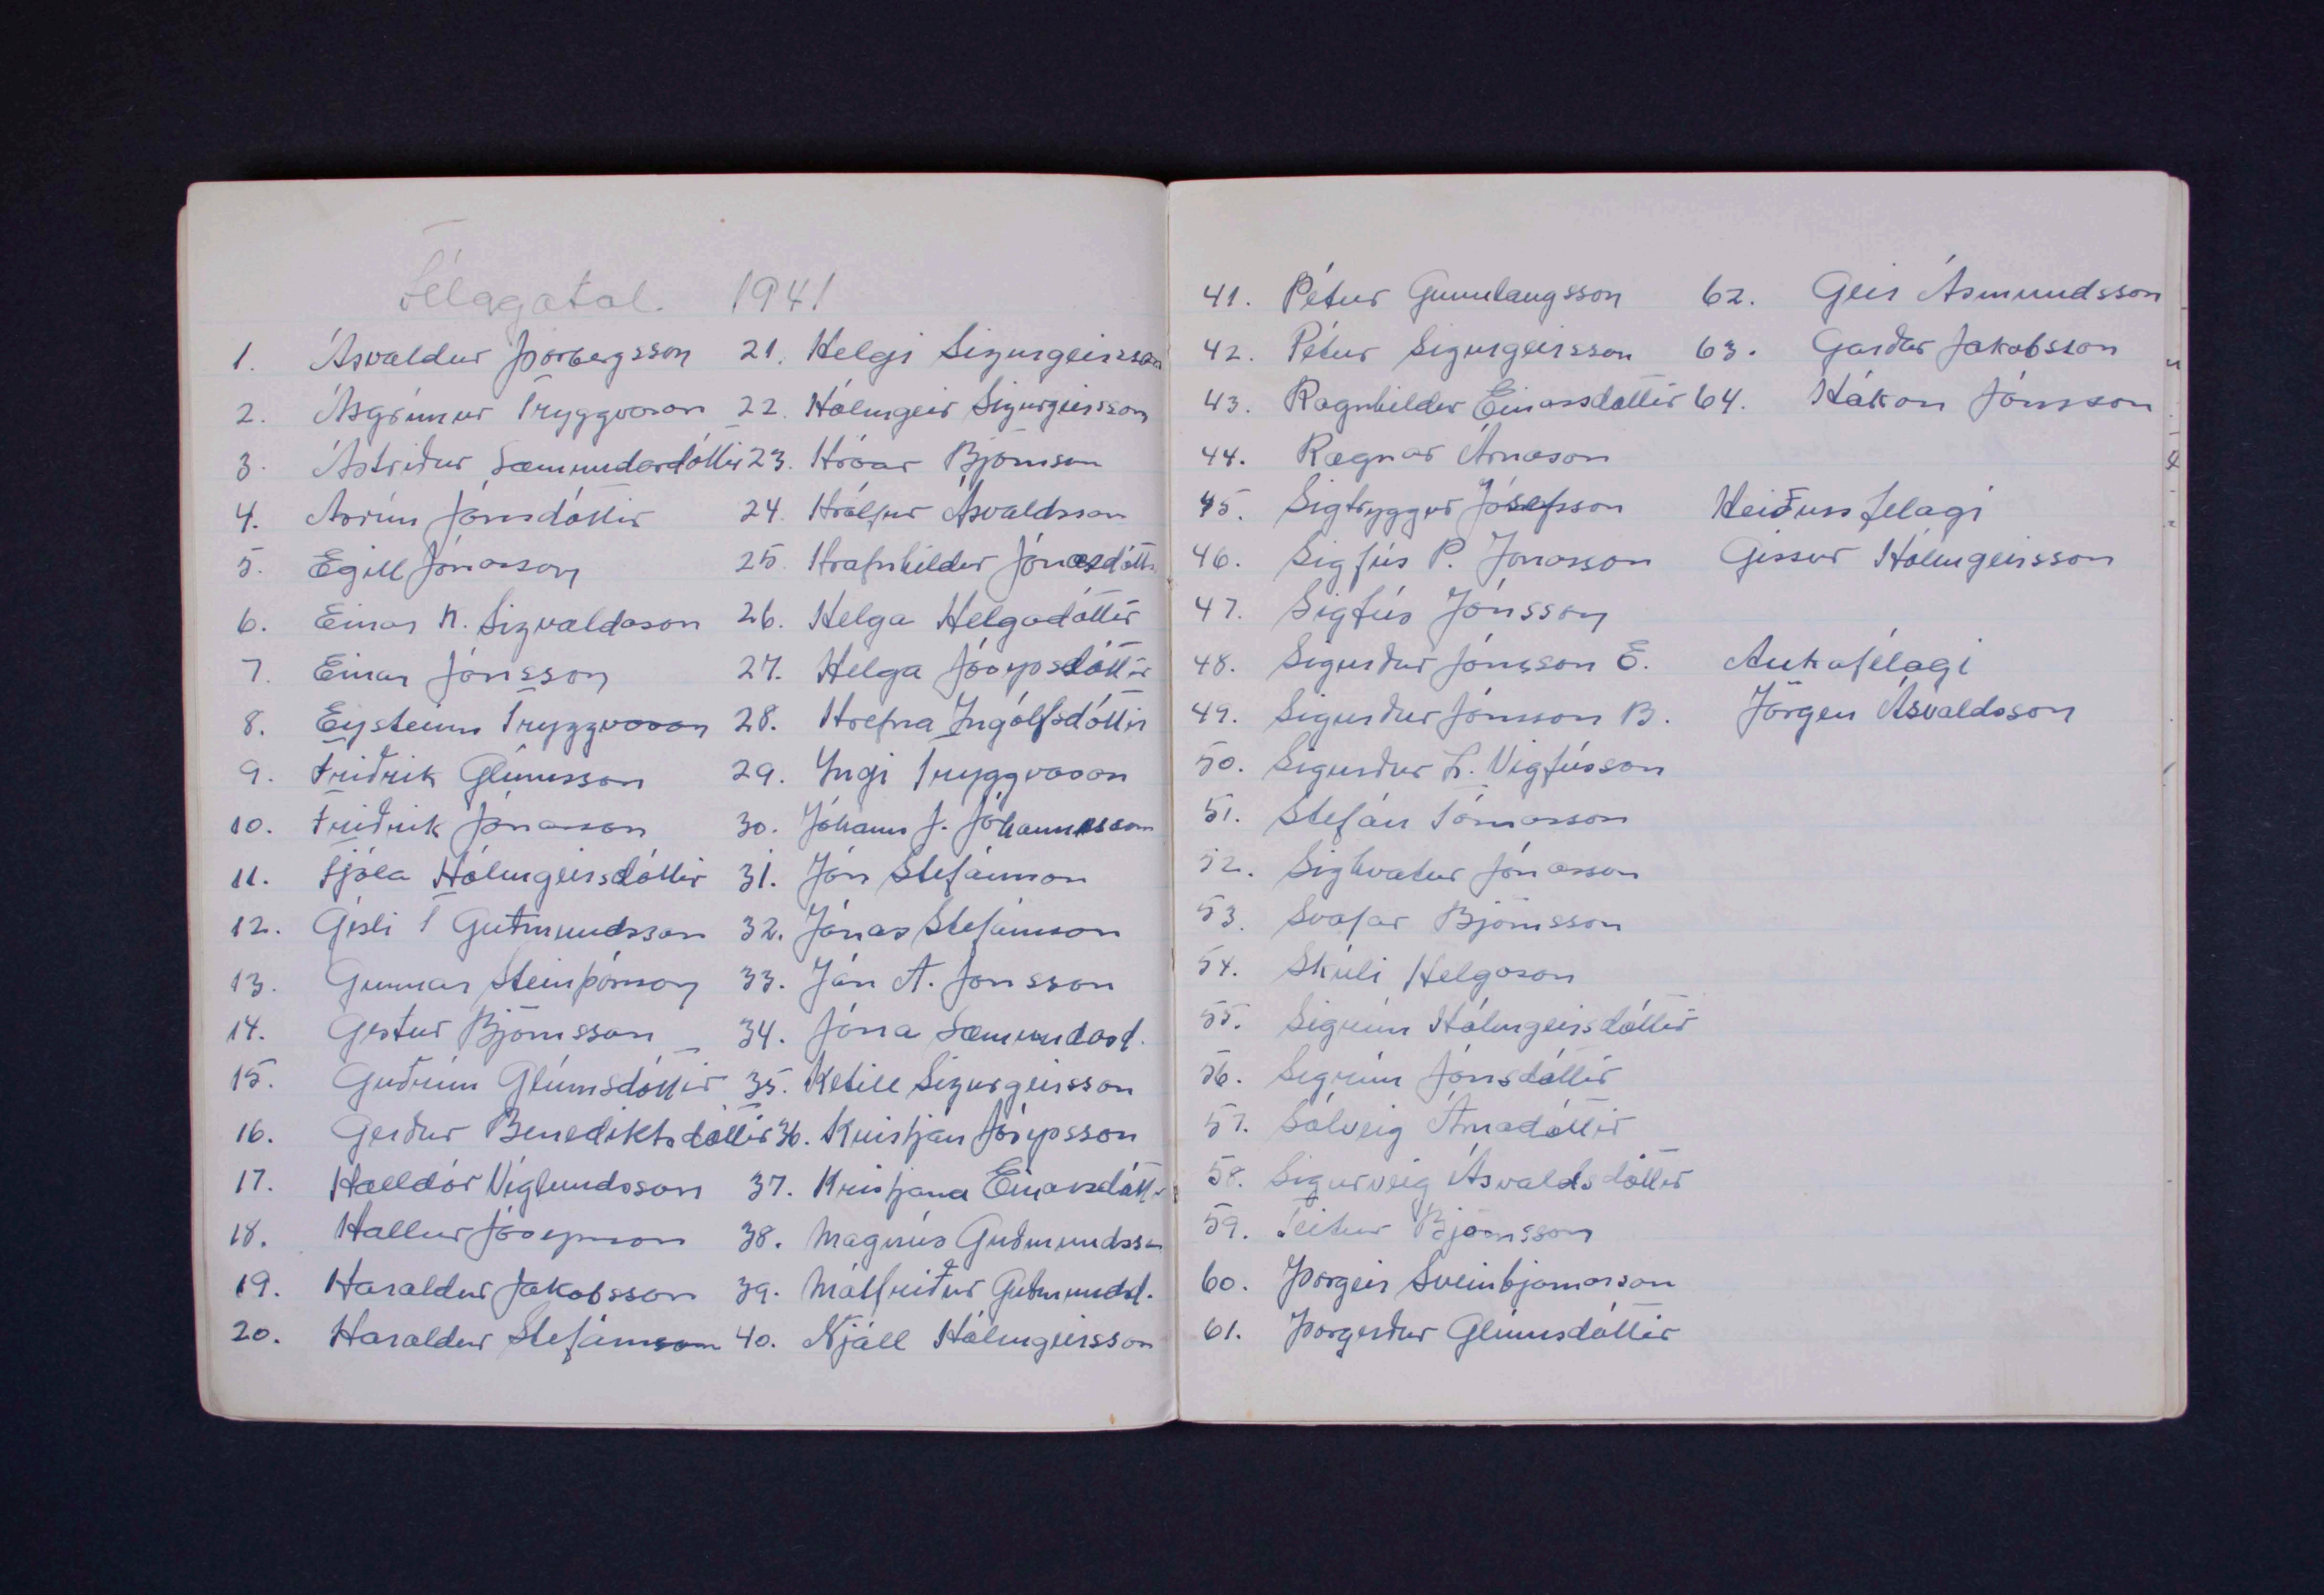 Félagatal. 1941
1. Ásvaldur Þorbergsson
2. Ásgrímur Tryggvason
3. Ástríður Sæmundardóttir
4. Asrún Jónsdóttir
5. Egill Jónasson
6. Einar N. Sigvaldason
7. Einar Jónsson
8. Eysteinn Tryggvason
9. Friðrik Glúmsson
10. Friðrik Jónasson
11. Fjóla Hólmgeirsdóttir
12. Gísli T Guðmundsson
13. Gunnar Steinþórsson
14. Gestur Björnsson
15. Guðrún Glúmsdóttir
16. Gerður Benediktsdóttir
17. Halldór Víglundsson
18. Hallur Jósepsson
19. Haraldur Jakobsson
20. Haraldur Stefánsson
21. Helgi Sigurgeirsson
22. Hólmgeir Sigurgeirsson
23. Hróar Björnsson
24. Hrólfur Ásvaldsson
25. Hrafnhildur Jónasdóttir
26. Helga Helgadóttir
27. Helga Jósepsdóttir
28. Hrefna Ingólfsdóttir
29. Yngi Tryggvason
30. Jóhann J. Jóhannesson
31. Jón Stefánsson
32. Jónas Stefánsson
33. Ján A. Jónsson
34. Jóna Sæmundasd.
35. Ketill Sigurgeirsson
36. Kristján Jósepsson
37. Kristjana Einarsdóttir
38. Magnús Guðmundsson
39. Málfríður Guðmundsd.
40. Njáll Hólmgeirsson
41. Pétur Gunnlaugsson
42. Pétur Sigurgeirsson
43. Ragnhildur Einarsdóttir
44. Ragnar Árnason
45. Sigtryggur Jósefsson
46. Sigfús P. Jónasson
47. Sigfús Jónsson
48. Sigurður Jónsson E.
49. Sigurður Jónsson B.
50. Sigurður L. Vigfússon
51. Stefán Tómasson
52. Sighvatur Jónasson
53. Svafar Björnsson
54. Skúli Helgason
55. Sigrún Hólmgeirsdóttir
56. Sigrún Jónsdóttir
57. Sólveig Árnadóttir
58. Sigurveig Ásvaldsdóttir
59. Teitur Björnsson
60. Þorgeir Sveinbjarnarson
61. Þorgerður Glúmsdóttir
62. Geir Ásmundsson
63. Garðar Jakobsson
64. Hákon Jónsson
Heiðursfélagi
Gissur Hólmgeirsson
Aukafélagi
Jörgen Ásvaldsson